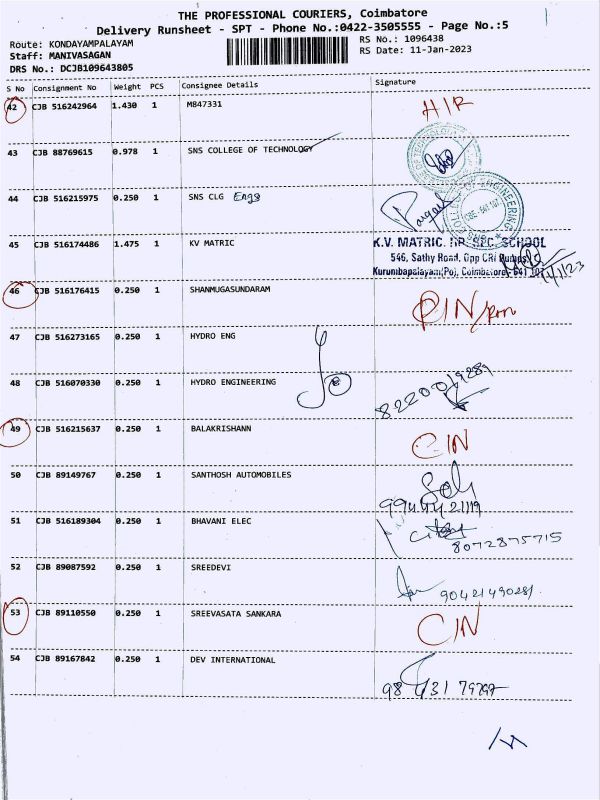 THE PROFESSIONAL COURIERS, Coimbatore
Delivery Runsheet - SPT - Phone No.:0422-3505555 - Page No.:5
Route: KONDAYAMPALAYAM
RS No.: 1096438
Staff: MANIVASAGAN
RS Date: 11-Jan-2023
DRS No.: DCJB109643805
S No Consignment No Weight PCS Consignee Details Signature
42 CJB 516242964 1.430 1 M847331 HIR
43 CJB 88769615 0.978 1 SNS COLLEGE OF TECHNOLOGY
44 CJB 516215975 0.250 1 SNS CLG Engg
45 CJB 516174486 1.475 1 KV MATRIC
K.V. MATRIC. HR. SEC. SCHOOL
546, Sathy Road, Opp CRI Pumps
Kurumbapalayam(Po), Coimbatore-641 107
11/1/23
46 CJB 516176415 0.250 1 SHANMUGASUNDARAM
47 CJB 516273165 0.250 1 HYDRO ENG
48 CJB 516070330 0.250 1 HYDRO ENGINEERING 8220019289
49 CJB 516215637 0.250 1 BALAKRISHANN CIN
50 CJB 89149767 0.250 1 SANTHOSH AUTOMOBILES
9944421119
51 CJB 516189304 0.250 1 BHAVANI ELEC
8072875715
52 CJB 89087592 0.250 1 SREEDEVI
9042149028
53 CJB 89110550 0.250 1 SREEVASATA SANKARA CIN
54 CJB 89167842 0.250 1 DEV INTERNATIONAL